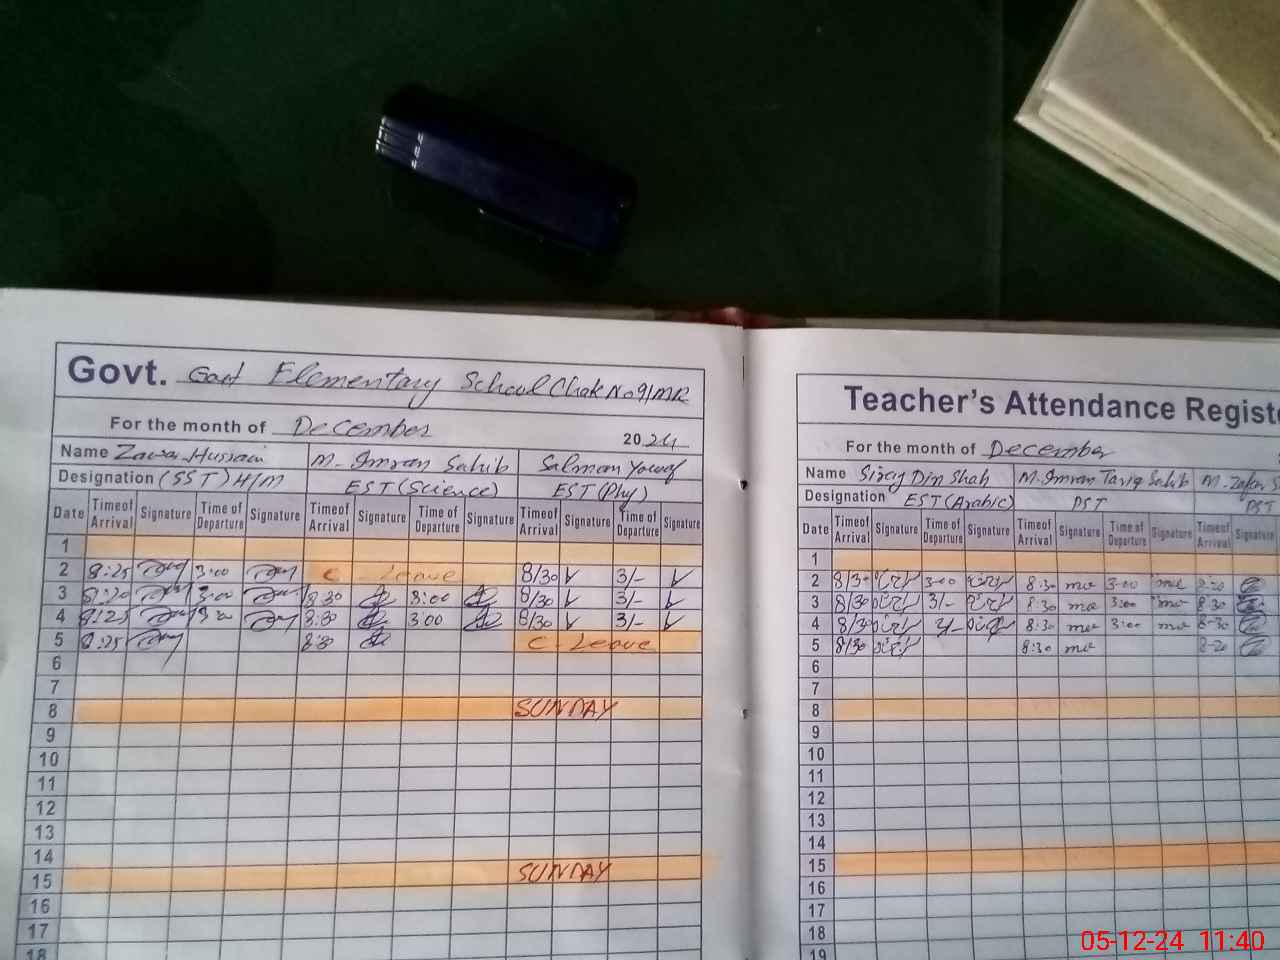 Govt. Govt Elementary School Chak No 91/MR
For the month of December 2024
Name Zawar Hussain M. Imran Sahib Salman Yousaf
Designation (SST) H/M EST (Science) EST (Phy)
Date Time of Arrival Signature Time of Departure Signature Time of Arrival Signature Time of Departure Signature Time of Arrival Signature Time of Departure Signature
1
2 8:25 3:00 C - Leave 8/30 3/-
3 8:20 3:00 8:30 3:00 8/30 3/-
4 8:25 3:00 8:30 3:00 8/30 3/-
5 8:25 8:30 C - Leave
6
7
8 SUNDAY
9
10
11
12
13
14
15 SUNDAY
16
17
18
Teacher's Attendance Registe
For the month of December
Name Siraj Din Shah M. Imran Tariq Sahib M. Zafar S
Designation EST (Arabic) PST PST
Date Time of Arrival Signature Time of Departure Signature Time of Arrival Signature Time of Departure Signature Time of Arrival Signature
1
2 8/30 3:00 8:30 3:00 8:20
3 8/30 3/- 8:30 3:00 8:30
4 8/30 3/- 8:30 3:00 8:30
5 8/30 8:30 8:20
6
7
8
9
10
11
12
13
14
15
16
17
18
19
05-12-24 11:40